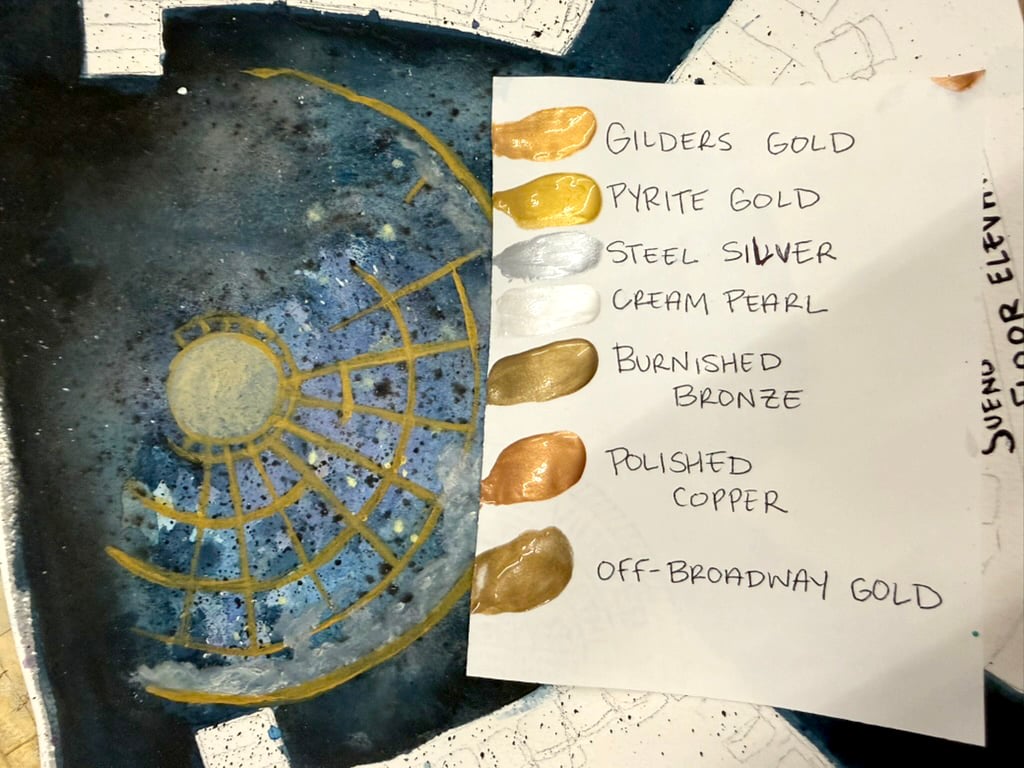 GILDERS GOLD
PYRITE GOLD
STEEL SILVER
CREAM PEARL
BURNISHED
BRONZE
POLISHED
COPPER
OFF-BROADWAY GOLD
SUENO
FLOOR